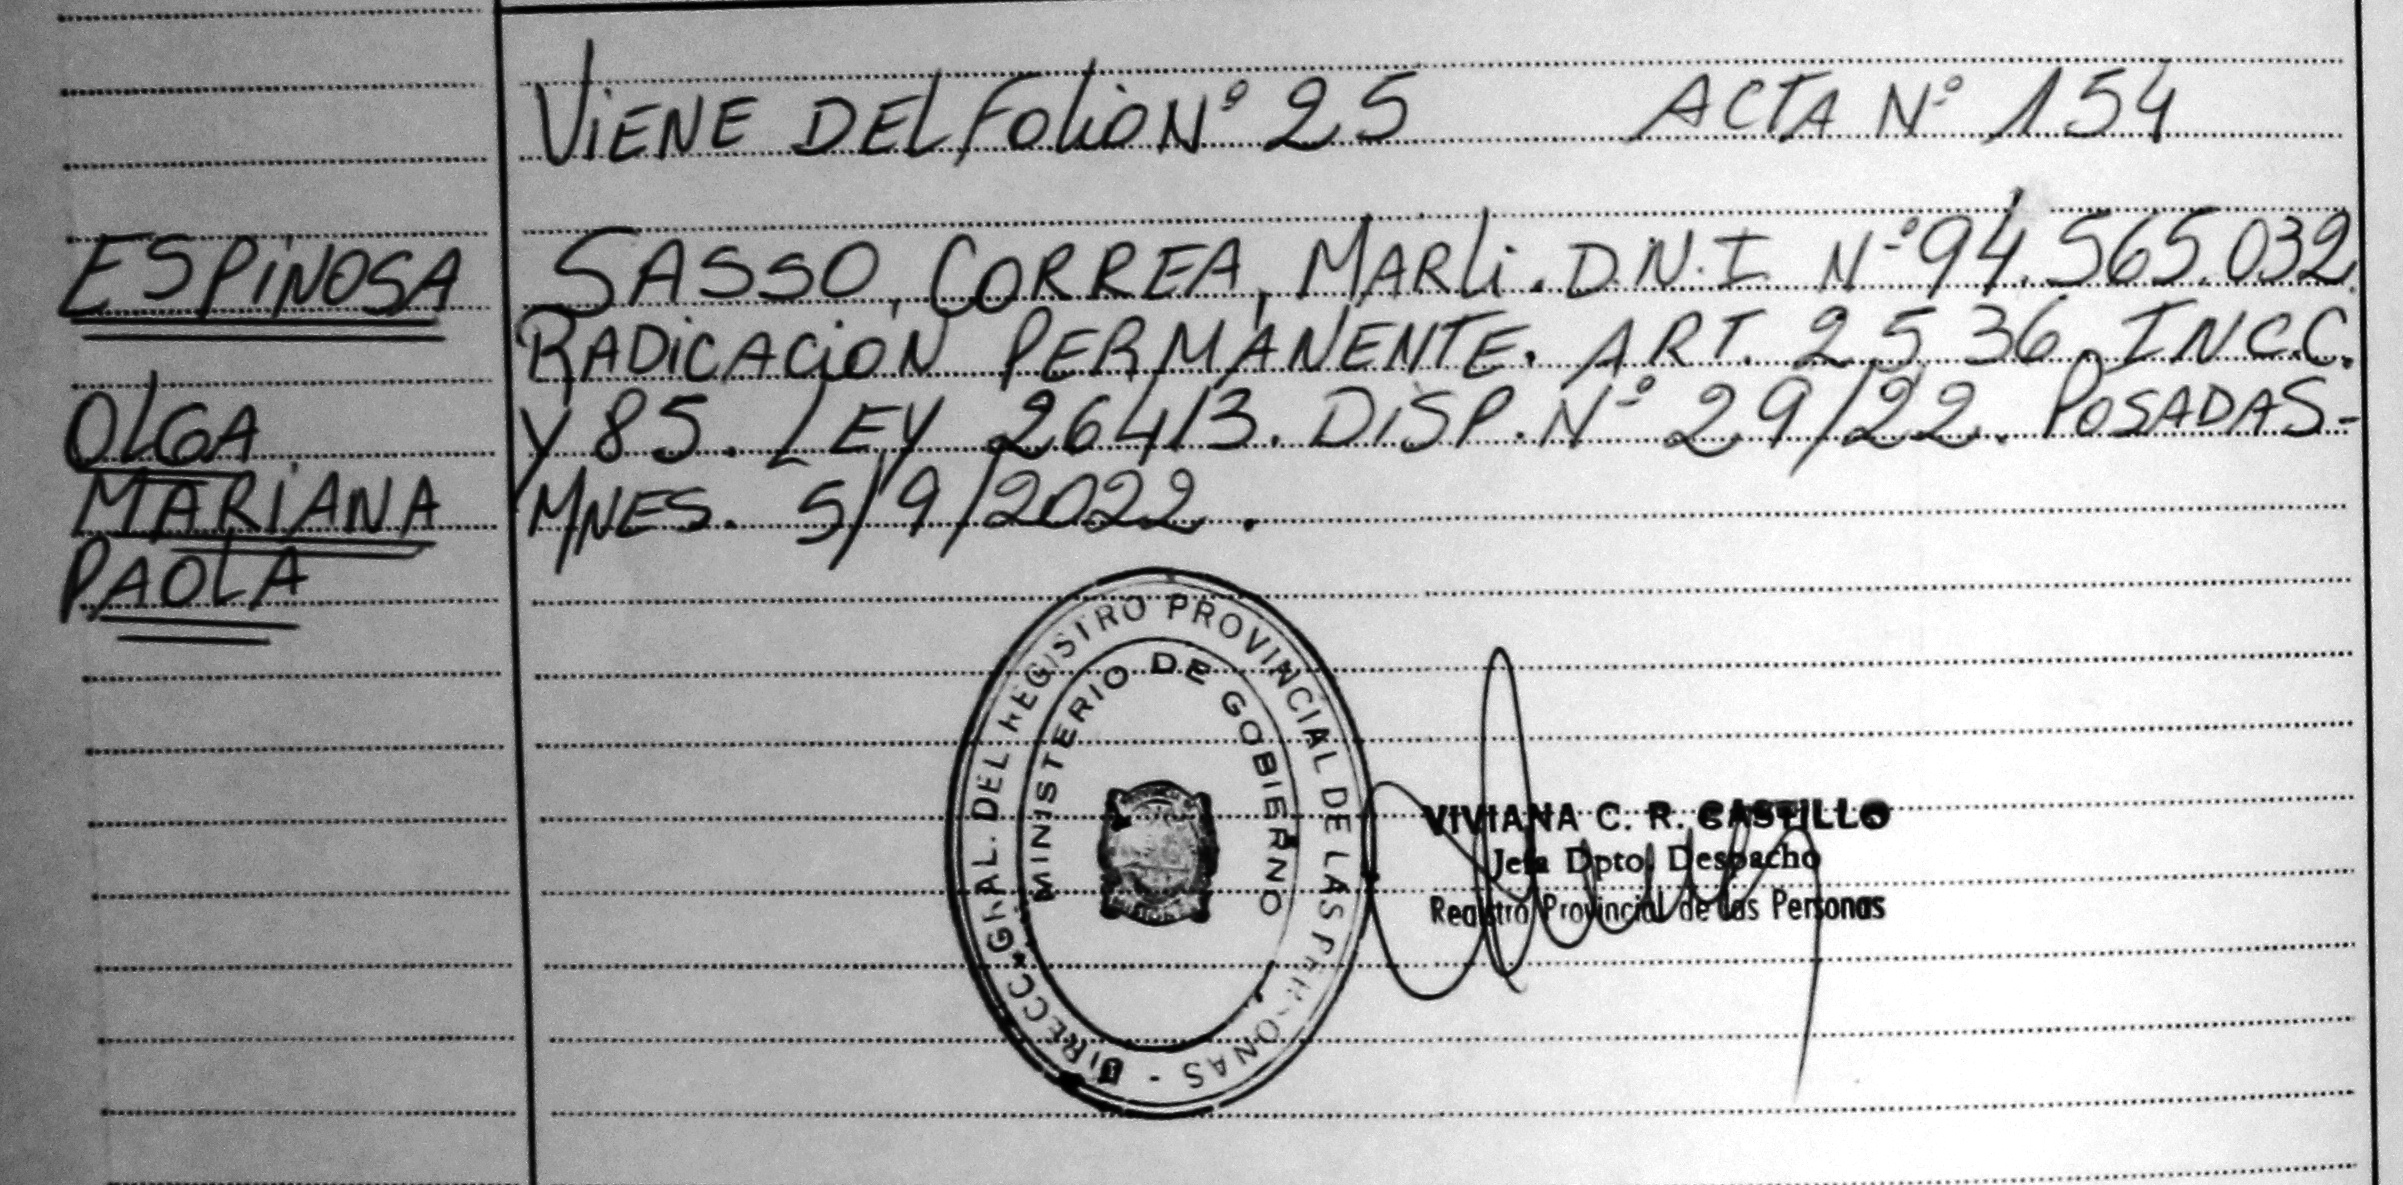 VIENE DEL FOLIO Nº 25 ACTA Nº 154
ESPINOSA
OLGA
MARIANA
PAOLA
SASSO, CORREA, MARLI. D.N.I Nº 94.565.032.
RADICACIÓN PERMANENTE. ART. 25 36, INC.C.
Y 85. LEY 26413. DISP. Nº 29/22. POSADAS-
MNES. 5/9/2022.
DIRECC. GRAL. DEL REGISTRO PROVINCIAL DE LAS PERSONAS -
MINISTERIO DE GOBIERNO
VIVIANA C. R. CASTILLO
Jefa Dpto. Despacho
Registro Provincial de las Personas